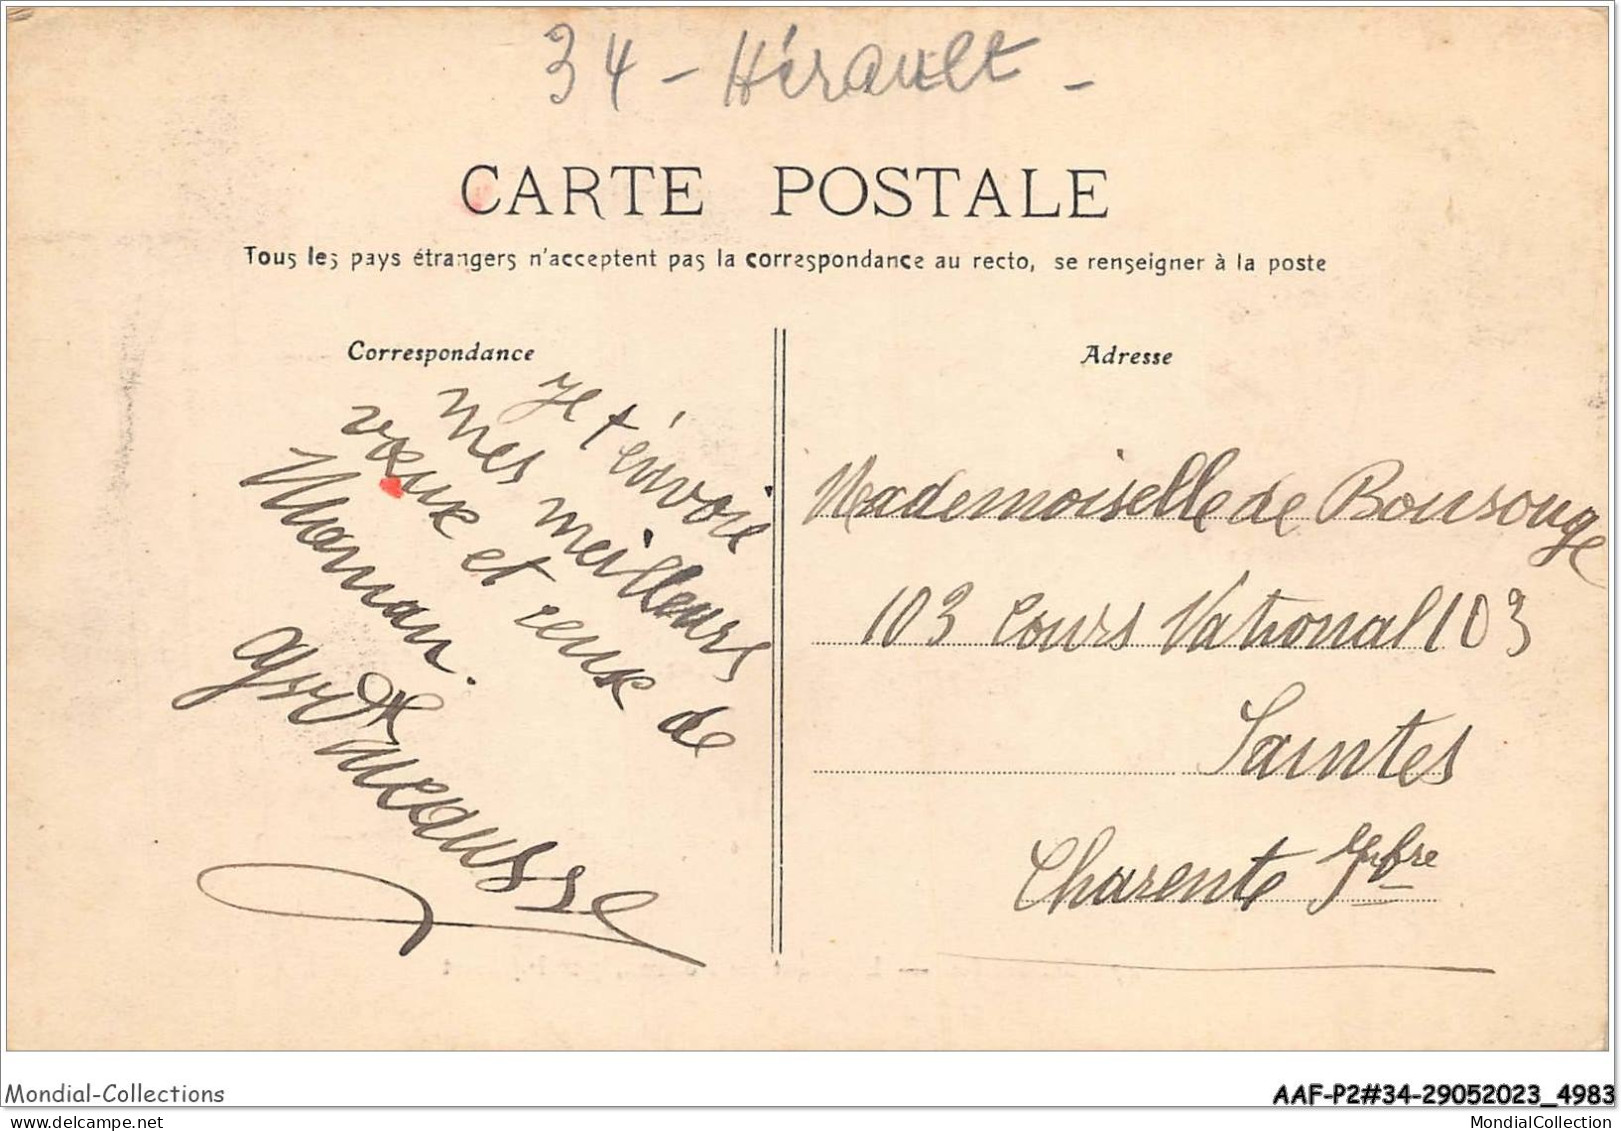 34 - Hérault -
CARTE POSTALE
Tous les pays étrangers n'acceptent pas la correspondance au recto, se renseigner à la poste
Correspondance
Je t'envoie
mes meilleurs
vœux et ceux de
Maman.
Adresse
Mademoiselle de Bousouge
103 Cours National 103
Saintes
Charente Infre
Mondial-Collections
AAF-P2#34-29052023_4983
mondial-collection.com
MondialCollection